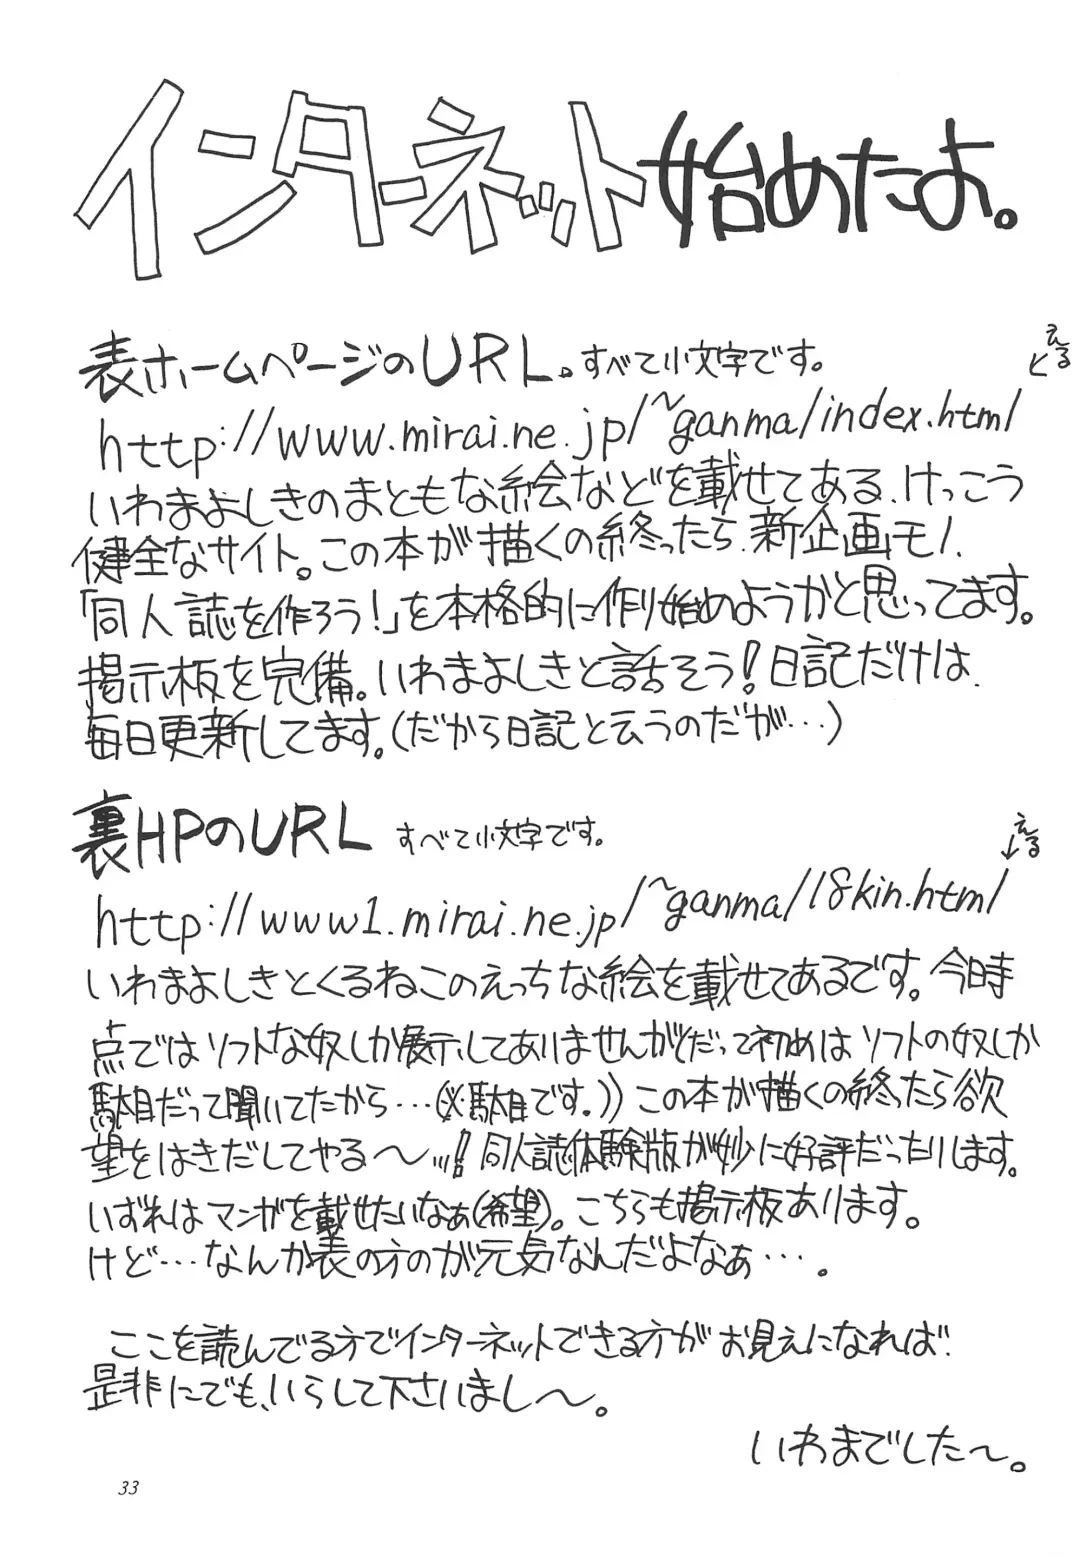 インターネット始めたよ。
表ホームページのURL。すべて小文字です。
える
http://www.mirai.ne.jp/~ganma/index.html
いわまよしきのまともな絵などを載せてある、けっこう
健全なサイト。この本が描くの終ったら、新企画モノ、
「同人誌を作ろう!」を本格的に作り始めようかと思ってます。
掲示板を完備。いわまよしきと話そう!日記だけは、
毎日更新してます。(だから日記と云うのだが…)
裏HPのURL すべて小文字です。
える
http://www1.mirai.ne.jp/~ganma/18kin.html
いわまよしきとくるねこのえっちな絵を載せてあるです。今日時
点ではソフトな奴しか展示してありませんが(だって初めはソフトの奴しか
駄目だって聞いてたから…(※駄目です。))この本が描くの終ったら欲
望をはきだしてやる〜!!同人誌体験版が妙に好評だったりします。
いずれはマンガを載せたいなぁ(希望)。こちらも掲示板あります。
けど…なんか表の方のが元気なんだよなぁ…。
ここを読んでる方でインターネットできる方がお見えになれば、
是非にでも、いらして下さいまし〜。
いわまでした〜。
33